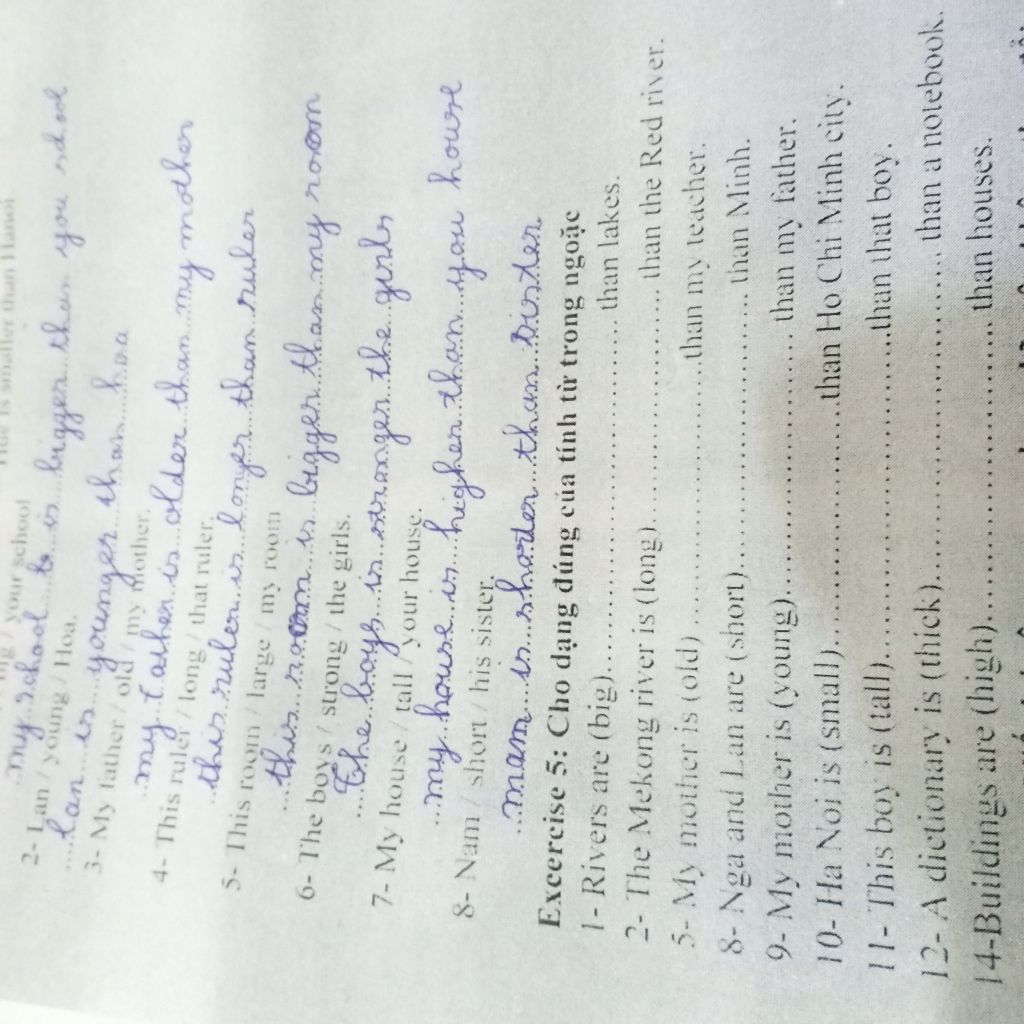 / your school
my school is bigger than you school
2- Lan / young / Hoa.
lan is younger than hoa
3- My father / old / my mother.
my father is older than my mother
4- This ruler / long / that ruler.
this ruler is longer than ruler
5- This room / large / my room
this room is bigger than my room
6- The boys / strong / the girls.
The boys is stronger the girls
7- My house / tall / your house.
my house is higher than you house
8- Nam / short / his sister.
mam is shorter than sister
Excercise 5: Cho dạng đúng của tính từ trong ngoặc
1- Rivers are (big)........................................ than lakes.
2- The Mekong river is (long)........................... than the Red river.
5- My mother is (old) ...............................than my teacher.
8- Nga and Lan are (short)................................ than Minh.
9- My mother is (young).............................. than my father.
10- Ha Noi is (small)...........................than Ho Chi Minh city.
11- This boy is (tall)...................................than that boy.
12- A dictionary is (thick).................................... than a notebook.
14-Buildings are (high)................................... than houses.